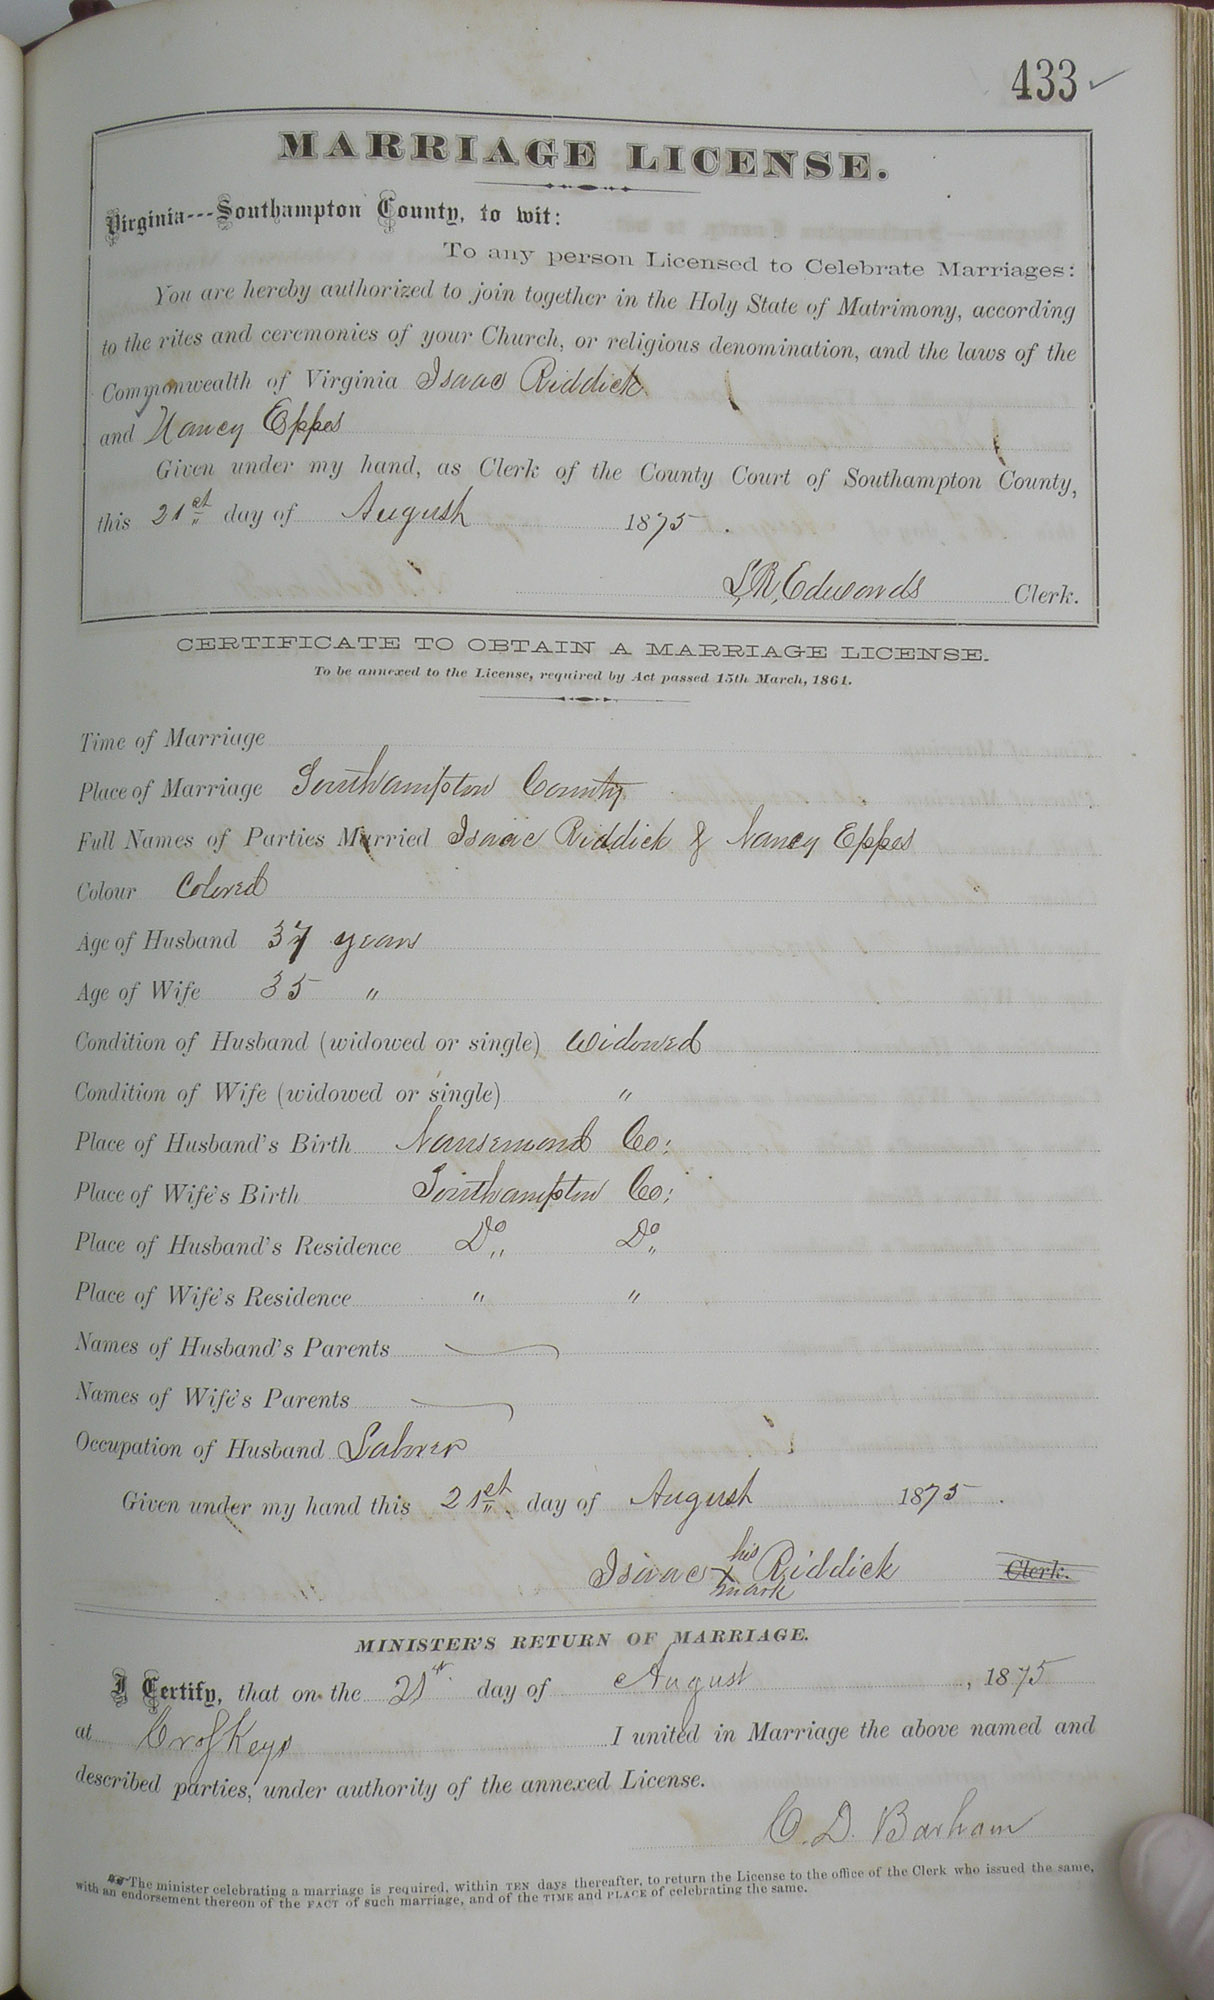 433 ✓
MARRIAGE LICENSE.
Virginia---Southampton County, to wit:
To any person Licensed to Celebrate Marriages:
You are hereby authorized to join together in the Holy State of Matrimony, according
to the rites and ceremonies of your Church, or religious denomination, and the laws of the
Commonwealth of Virginia Isaac Riddick
and Nancy Eppes
Given under my hand, as Clerk of the County Court of Southampton County,
this 21st day of August 1875.
L.R. Edwards Clerk.
CERTIFICATE TO OBTAIN A MARRIAGE LICENSE.
To be annexed to the License, required by Act passed 15th March, 1861.
Time of Marriage
Place of Marriage Southampton County
Full Names of Parties Married Isaac Riddick & Nancy Eppes
Colour Colored
Age of Husband 37 years
Age of Wife 35 "
Condition of Husband (widowed or single) Widowed
Condition of Wife (widowed or single) "
Place of Husband's Birth Nansemond Co:
Place of Wife's Birth Southampton Co:
Place of Husband's Residence Do Do
Place of Wife's Residence " "
Names of Husband's Parents
Names of Wife's Parents
Occupation of Husband Laborer
Given under my hand this 21st day of August 1875.
Isaac his X mark Riddick Clerk.
MINISTER'S RETURN OF MARRIAGE.
I Certify, that on the 21st day of August, 1875
at Cross Keys I united in Marriage the above named and
described parties, under authority of the annexed License.
C. D. Barham
The minister celebrating a marriage is required, within TEN days thereafter, to return the License to the office of the Clerk who issued the same,
with an endorsement thereon of the FACT of such marriage, and of the TIME and PLACE of celebrating the same.